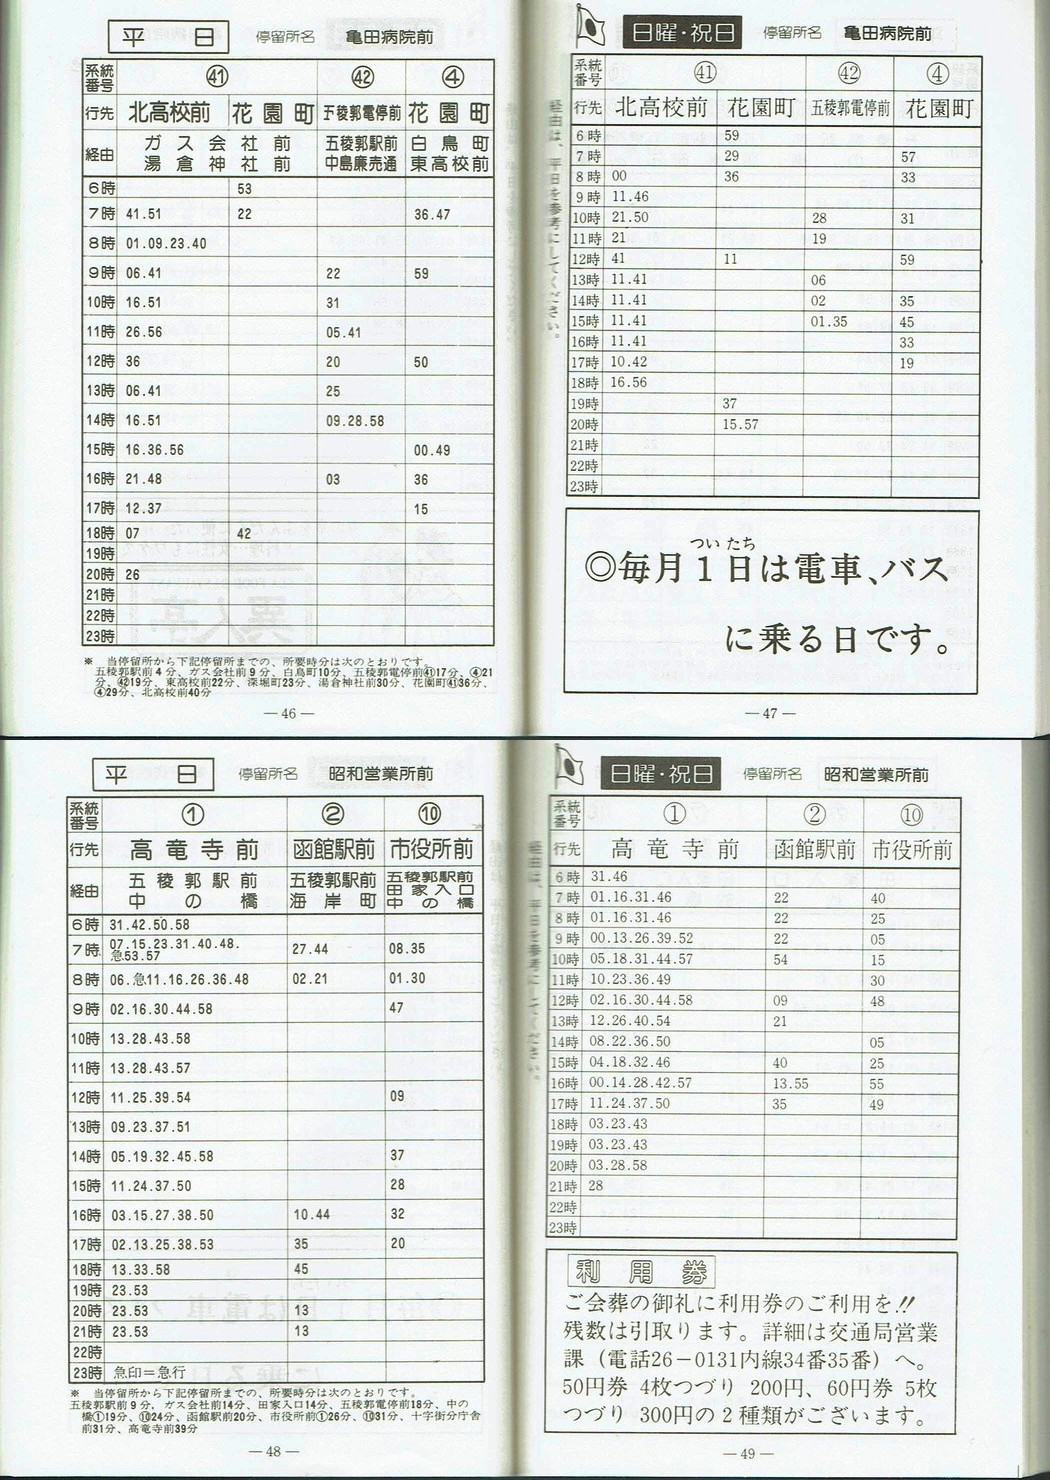 平 日 停留所名 亀田病院前
系統番号 ㊶ ㊷ ④
行先 北高校前 花園町 五稜郭電停前 花園町
経由 ガス会社前 湯倉神社前 五稜郭駅前 中島廉売通 白鳥町 東高校前
6時 53
7時 41.51 22 36.47
8時 01.09.23.40
9時 06.41 22 59
10時 16.51 31
11時 26.56 05.41
12時 36 20 50
13時 06.41 25
14時 16.51 09.28.58
15時 16.36.56 00.49
16時 21.48 03 36
17時 12.37 15
18時 07 42
19時
20時 26
21時
22時
23時
※ 当停留所から下記停留所までの、所要時分は次のとおりです。
五稜郭駅前4分、ガス会社前9分、白鳥町10分、五稜郭電停前㊶17分、④21
分、㊷19分、東高校前22分、深堀町23分、湯倉神社前30分、花園町㊶36分、
④29分、北高校前40分
— 46 —
日曜・祝日 停留所名 亀田病院前
系統番号 ㊶ ㊷ ④
行先 北高校前 花園町 五稜郭電停前 花園町
6時 59
7時 29 57
8時 00 36 33
9時 11.46
10時 21.50 28 31
11時 21 19
12時 41 11 59
13時 11.41 06
14時 11.41 02 35
15時 11.41 01.35 45
16時 11.41 33
17時 10.42 19
18時 16.56
19時 37
20時 15.57
21時
22時
23時
経由は、平日を参考にしてください。
ついたち
◎毎月1日は電車、バス
に乗る日です。
— 47 —
平 日 停留所名 昭和営業所前
系統番号 ① ② ⑩
行先 高竜寺前 函館駅前 市役所前
経由 五稜郭駅前 中の橋 五稜郭駅前 海岸町 五稜郭駅前 田家入口 中の橋
6時 31.42.50.58
7時 07.15.23.31.40.48. 急53.57 27.44 08.35
8時 06.急11.16.26.36.48 02.21 01.30
9時 02.16.30.44.58 47
10時 13.28.43.58
11時 13.28.43.57
12時 11.25.39.54 09
13時 09.23.37.51
14時 05.19.32.45.58 37
15時 11.24.37.50 28
16時 03.15.27.38.50 10.44 32
17時 02.13.25.38.53 35 20
18時 13.33.58 45
19時 23.53
20時 23.53 13
21時 23.53 13
22時
23時 急印=急行
※ 当停留所から下記停留所までの、所要時分は次のとおりです。
五稜郭駅前9分、ガス会社前14分、田家入口14分、五稜郭電停前18分、中の
橋①19分、⑩24分、函館駅前20分、市役所前①26分、⑩31分、十字街分庁舎
前31分、高竜寺前39分
— 48 —
日曜・祝日 停留所名 昭和営業所前
系統番号 ① ② ⑩
行先 高竜寺前 函館駅前 市役所前
6時 31.46
7時 01.16.31.46 22 40
8時 01.16.31.46 22 25
9時 00.13.26.39.52 22 05
10時 05.18.31.44.57 54 15
11時 10.23.36.49 30
12時 02.16.30.44.58 09 48
13時 12.26.40.54 21
14時 08.22.36.50 05
15時 04.18.32.46 40 25
16時 00.14.28.42.57 13.55 55
17時 11.24.37.50 35 49
18時 03.23.43
19時 03.23.43
20時 03.28.58
21時 28
22時
23時
経由は、平日を参考にしてください。
利用券
ご会葬の御礼に利用券のご利用を!!
残数は引取ります。詳細は交通局営業
課(電話26-0131内線34番35番)へ。
50円券 4枚つづり 200円、60円券 5枚
つづり 300円の2種類がございます。
— 49 —